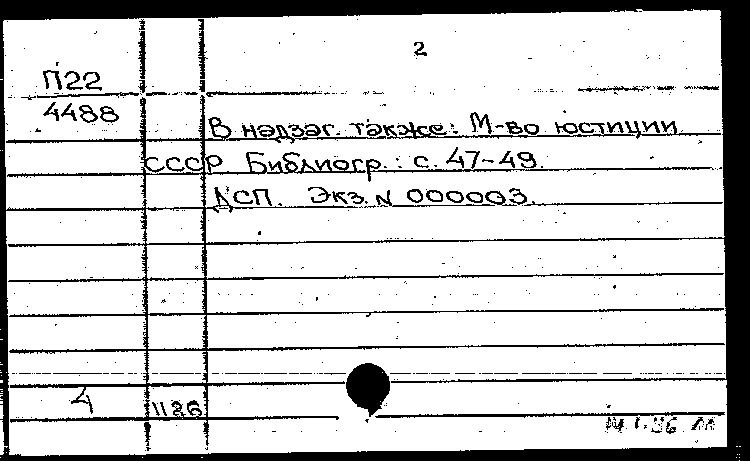 2
П22
4488
В надзаг. также: М-во юстиции
СССР Библиогр.: с. 47-49.
ДСП. Экз. N 000003.
4
1186